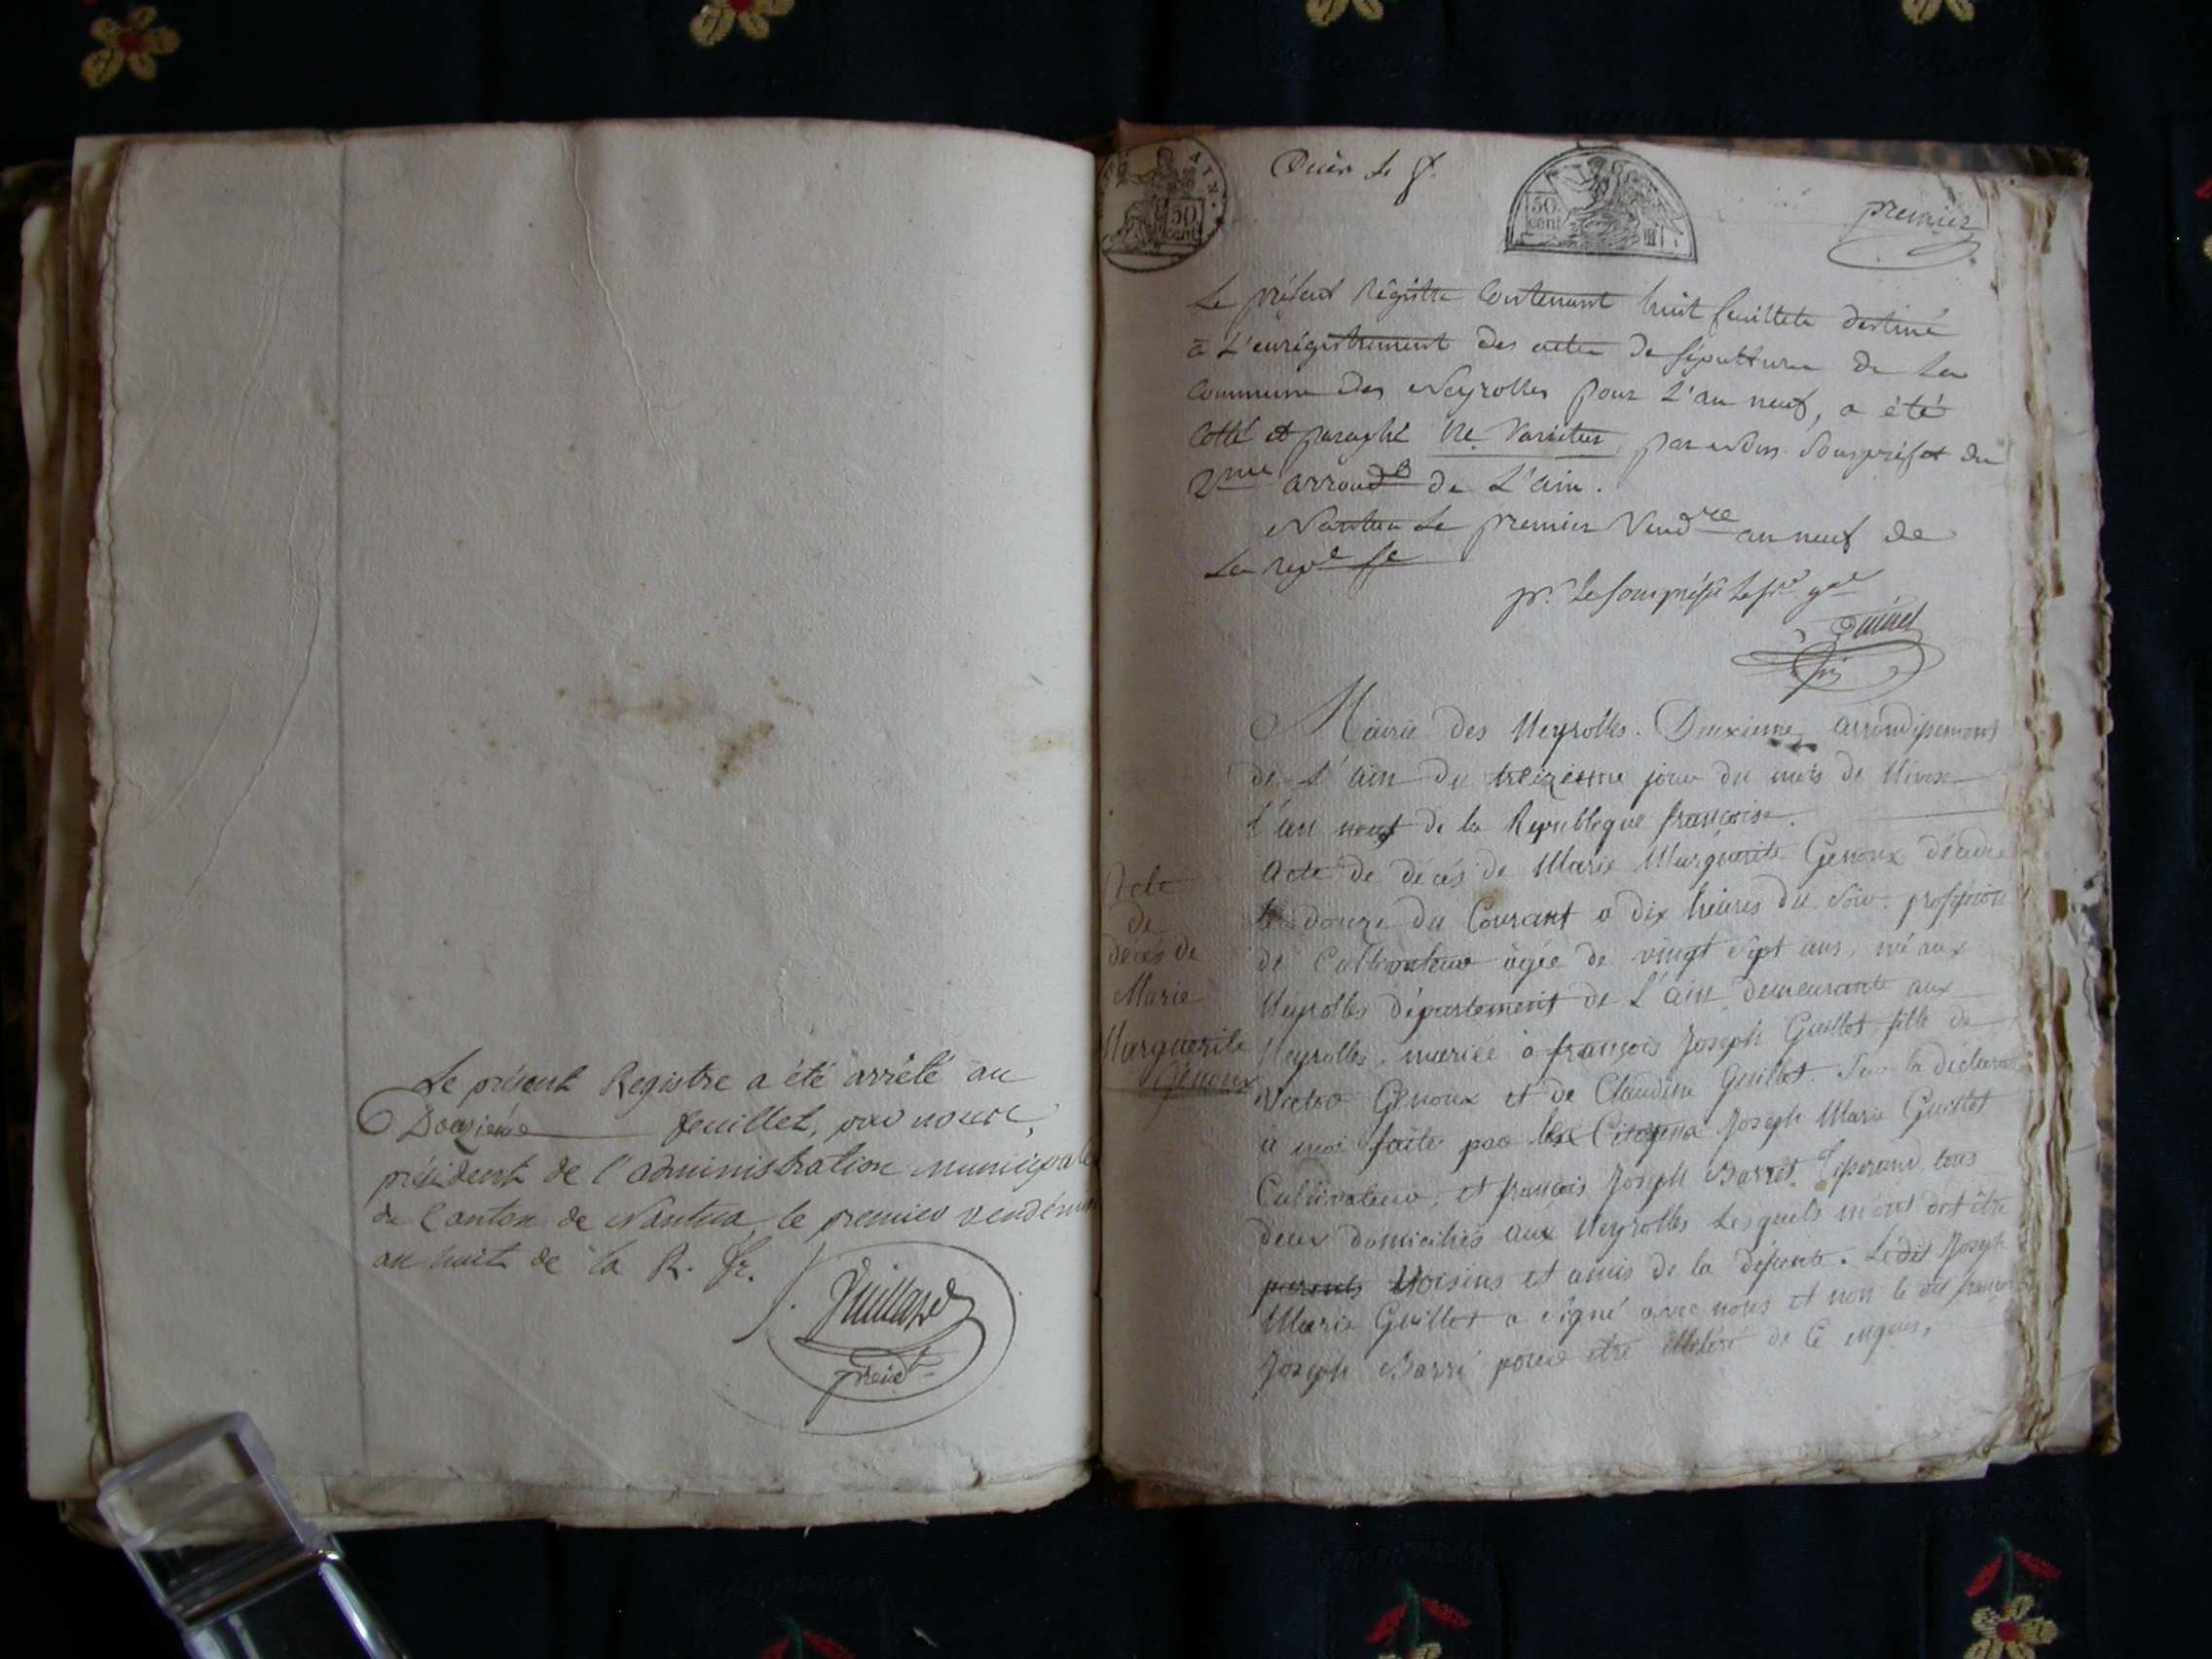 Le présent Registre a été arrêté au
Douzième feuillet, par nous,
président de l'administration municipale
du Canton de Nantua le premier vendémi
an huit de la R. fr.
présidt
AIN.
50 cent
50. cent
premier
Le présent Régistre Contenant huit feuillets destiné
à L'enrégistrement des actes de sépulture de La
Commune des Neyrolles pour L'an neuf, a été
Cotté et paraphé Ne Varietur par nous Sousprefet du
2me arrondt de L'ain.
Nantua Le premier Vendre an neuf de
La repe fe
pr. Le sousprefet Le sre gal
Mairie des Neyrolles. Deuxieme arrondissement
de L'ain du treizieme jour du mois de Nivose
l'an neuf de la Republique françoise.
Acte
de
décés de
Marie
Marguerite
Genoux
Acte de décés de Marie Marguerite Genoux décédée
le douze du Courant a dix heures du soir. profession
de Cultivateur agée de vingt sept ans, né aux
Neyrolles département de L'ain demeurante aux
Neyrolles. mariée à françois Joseph Guillot fille de
Victor Genoux et de Claudine Guillot. Sur la déclarat
à moi faite par les Citoyens Joseph Marie Guillot
Cultivateur, et françois Joseph Barret Tisserand, tous
deux domiciliés aux Neyrolles Lesquels m'ont dit être
parents Voisins et amis de la défunte. Ledit Joseph
Marie Guillot a signé avec nous et non le dit françois
Joseph Barré pour etre illetéré de Ce enquis,